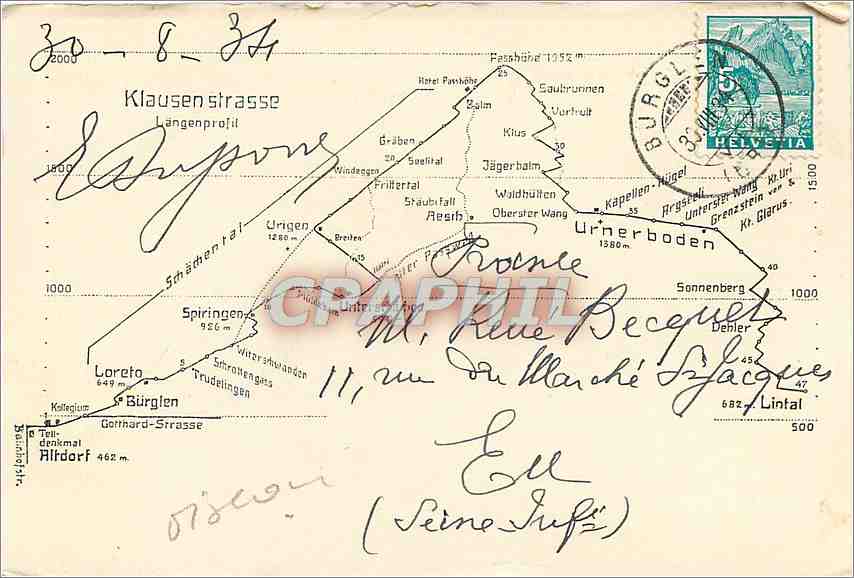 30-8-34
2000
Passhöhe 1952 m.
25
Hotel Passhöhe
Balm
Saubrunnen
Vorfrutt
Klus
HELVETIA
5
BÜRGLEN
30.VIII.34
Klausenstrasse
Längenprofil
Gräben
20
Seelital
Windeggen
Frittertal
Jägerbalm
Waldhütten
Oberster Wang
1500
Stäubifall
Aesch
Kapellen-Hügel
35
Argseeli
Unterster Wang
Grenzstein von
Kt. Uri
&
Kt. Glarus.
1500
Urigen
1280 m
Breiten
15
Urnerboden
1380 m
40
Schächental
France
Sonnenberg
1000
Spiringen
926 m
10
Unterschächen
CPAPHIL
1000
M. René Becquet
Dehler
45
Witerschwanden
Schrottengass
Trudelingen
5
Loreto
649 m
11, rue du Marché St Jacques
47
682 m. Lintal
Bürglen
Kollegium
Gotthard-Strasse
500
1
Tell-
denkmal
Altdorf 462 m.
Bahnhofstr.
Eu
(Seine-Infre)